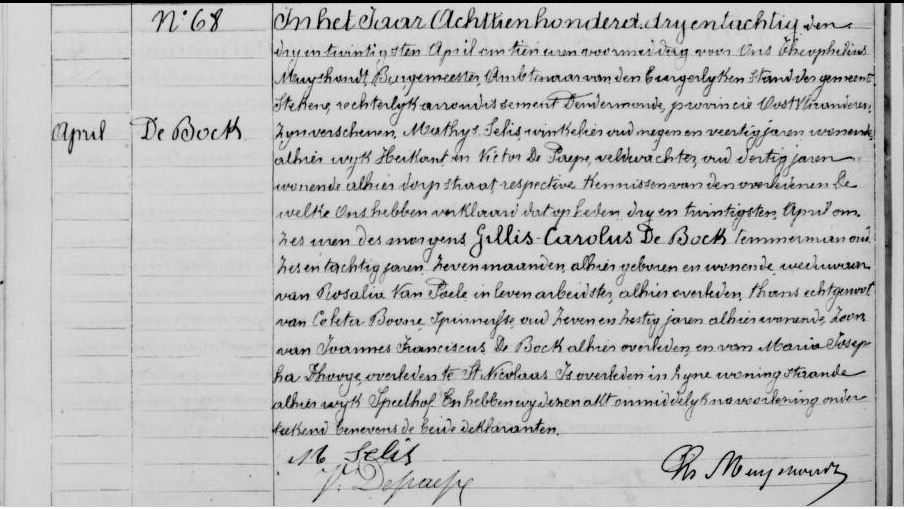 N: 68
April
De Bock
In het Jaar Achttienhonderd dry en tachtig den
dry en twintigsten April om tien uren voormiddag voor Ons Theophilius
Meuyshondt, Burgemeester, Ambtenaar van den Burgerlyken stand der gemeente
Stekene, rechterlyk arrondissement Dendermonde, provincie Oost Vlaanderen,
Zyn verschenen, Mathys Selis, winkelier oud negen en veertig jaren wonende
alhier wyk Heikant en Victor De Paepe, veldwachter, oud dertig jaren
wonende alhier dorpstraat, respective Kennissen van den overledenen De
welke Ons hebben verklaard dat op heden, dry en twintigsten April om
zes uren des morgens Gillis-Carolus De Bock temmerman oud
zes en tachtig jaren, zeven maanden, alhier geboren en wonende, weduwaar
van Rosalia Van Poele, in leven arbeidster, alhier overleden, thans echtgenoot
van Coleta Boone, Spinnersse, oud zeven en zestig jaren alhier wonende, zoon
van Joannes Franciscus De Bock alhier overleden, en van Maria Josep-
ha Dhooge, overleden te St Nicolaas Is overleden in zyne woning staande
alhier wyk Speelhof. En hebben wy dezen akt onmiddelyk na voorlezing onder
teekend benevens de beide deklaranten.
M Selis
V. Depaepe
Th Meuyshondt